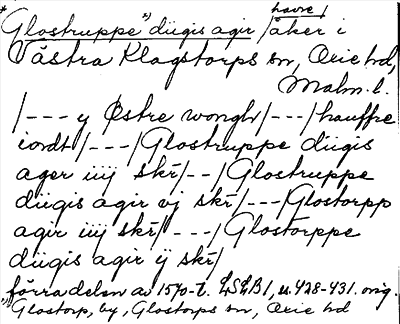 havre/
*Glostruppe *) diigis agir /åker i
Västra Klagstorps sn, Oxie hd,
Malm. l.
/--- y Østre wongh/---/hauffre
iordt/---/Glostruppe diigis
ager iiij skr̄/--/Glostruppe
diigis agir vj skr̄/---/Glostorpp
agir iiij skr̄/---/Glostorppe
diigis agir ij skr̄/
förra delen av 1570-t. LSLB1, u. 428-431. orig.
*) Glostorp, by, Glostorps sn, Oxie hd